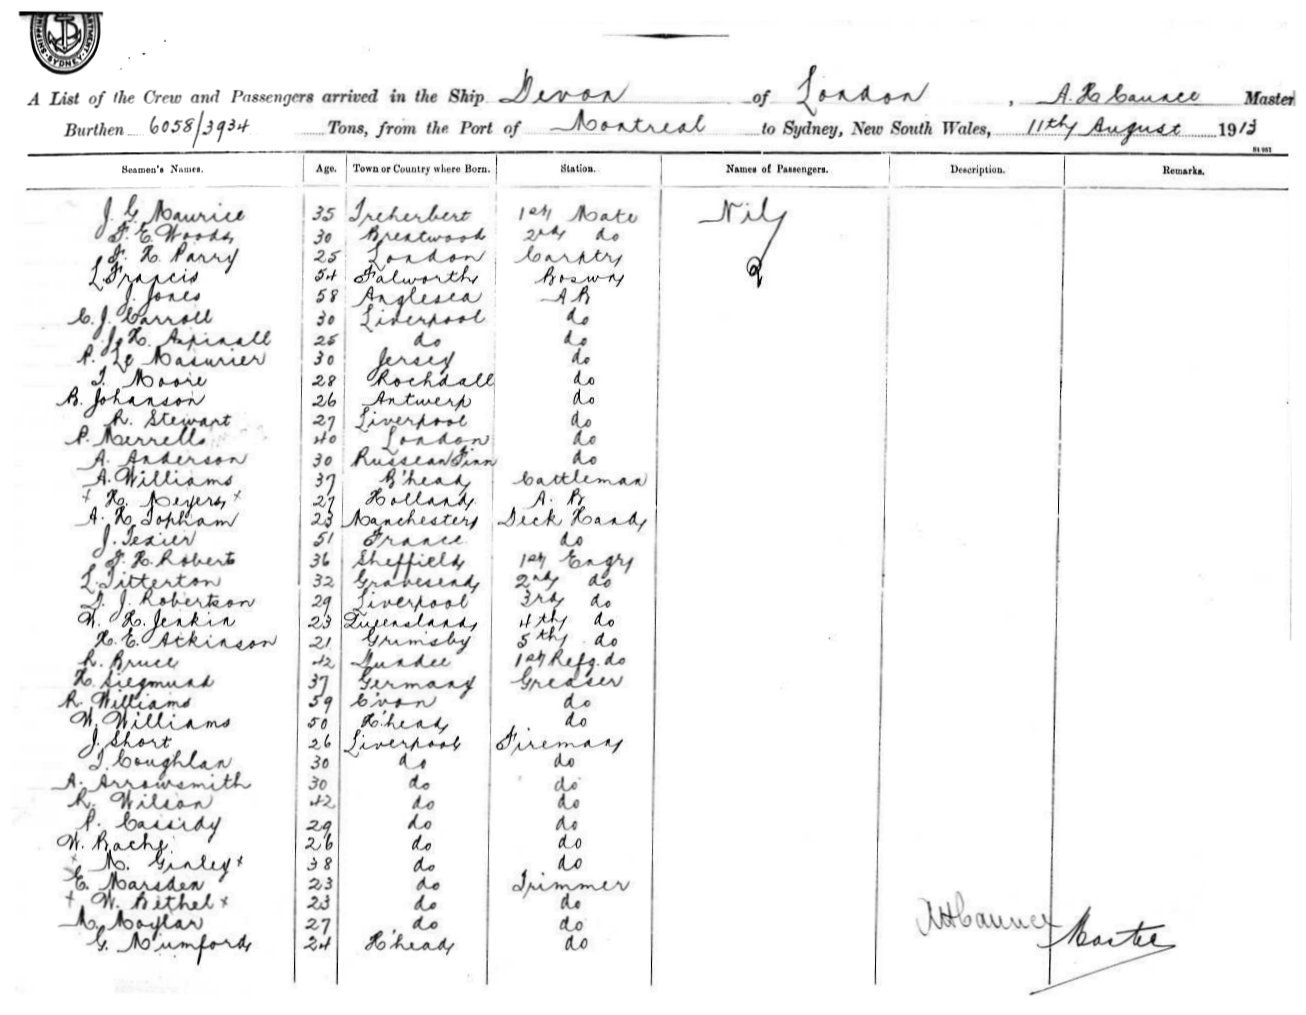 SHIPPING SYDNEY
A List of the Crew and Passengers arrived in the Ship Devon of London, A. H. Caunce Master
Burthen 6058/3934 Tons, from the Port of Montreal to Sydney, New South Wales, 11th August 1913
Seamen's Names. Age. Town or Country where Born. Station. Names of Passengers. Description. Remarks.
J. G. Maurice 35 Treherbert 1st Mate Nil
F. E. Woods 30 Brentwood 2nd do
F. H. Parry 25 London Carptr
L. Francis 54 Falworth Boswn
J. Jones 58 Anglesea AB
C. J. Carroll 30 Liverpool do
J. H. Aspinall 25 do do
P. Le Masurier 30 Jersey do
T. Moore 28 Rochdall do
B. Johanson 26 Antwerp do
R. Stewart 27 Liverpool do
P. Merrells 40 London do
A. Anderson 30 Russean Finn do
A. Williams 37 B'head Cattleman
+ H. Meyers + 27 Holland A. B
A. H. Topham 23 Manchester Deck Hand
J. Texier 51 France do
F. H. Robert 36 Sheffield 1st Engr
L. Titterton 32 Gravesend 2nd do
D. J. Robertson 29 Liverpool 3rd do
W. H. Jenkin 23 Queensland 4th do
H. E. Atkinson 21 Grimsby 5th do
R. Bruce 42 Dundee 1st Refg. do
H. Siegmund 37 Germany Greaser
R. Williams 59 C'von do
W. Williams 50 H'head do
J. Short 26 Liverpool Fireman
T. Coughlan 30 do do
A. Arrowsmith 30 do do
R. Wilson 42 do do
P. Cassidy 29 do do
W. Rache 26 do do
+ M. Ginley + 38 do do
E. Marsden 23 do Trimmer
+ W. Bethel + 23 do do
M. Moylan 27 do do
G. Mumford 24 H'head do
A H Caunce Master